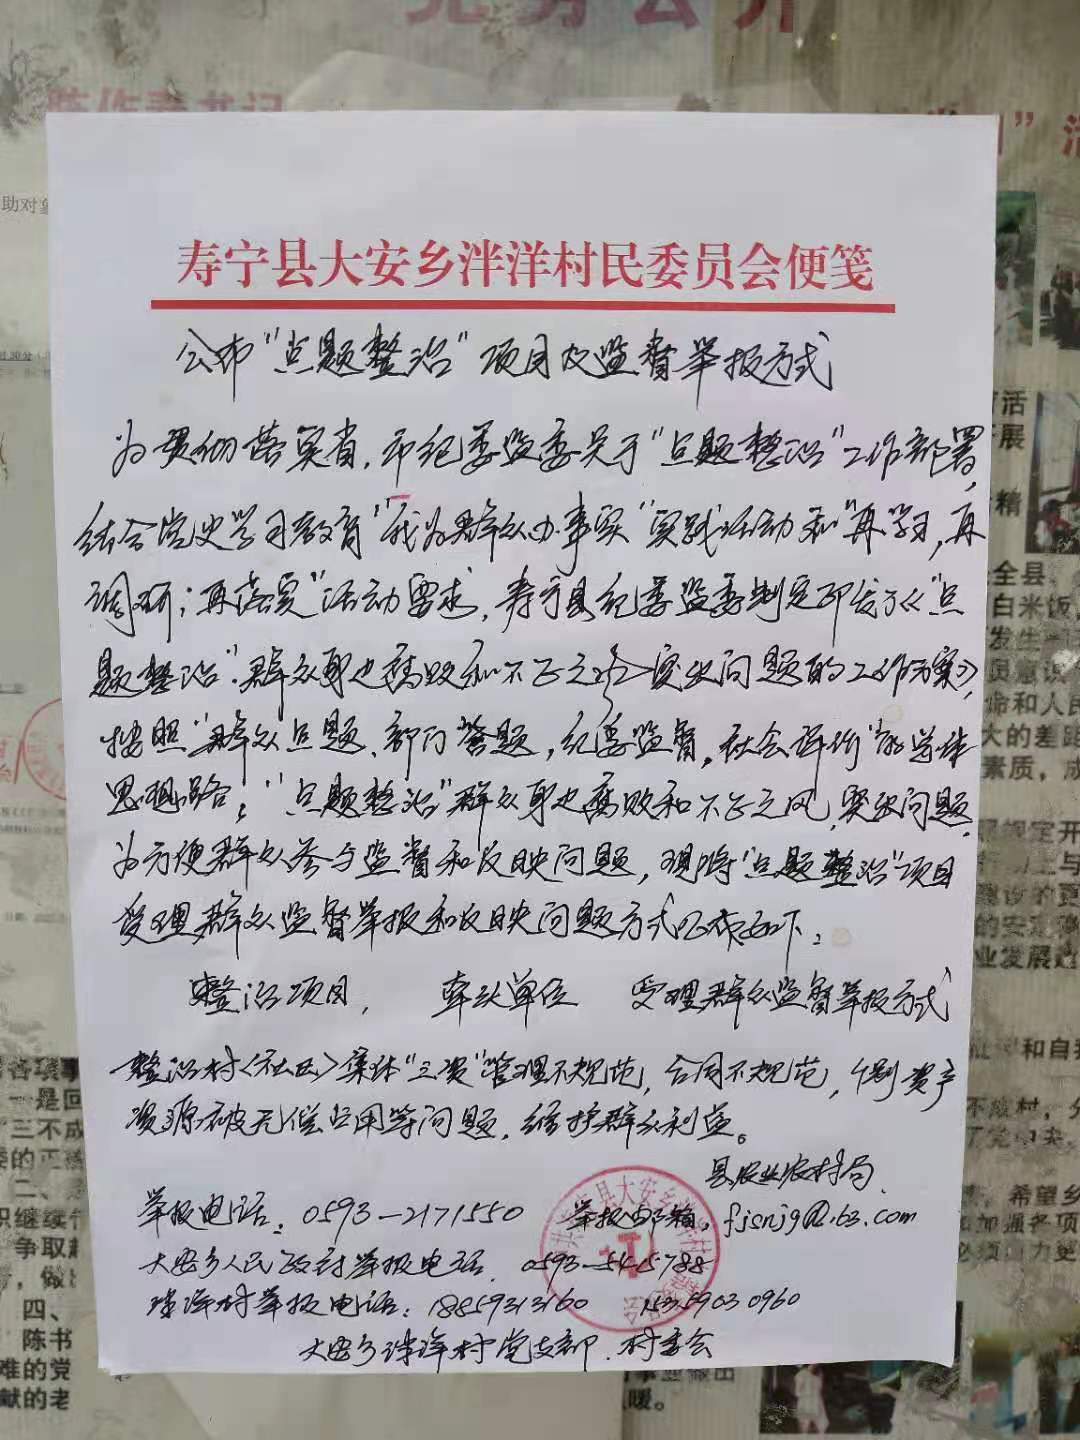 党务公开
助对象
寿宁县大安乡泮洋村民委员会便笺
公布"点题整治"项目及监督举报方式
为贯彻落实省,市纪委监委关于"点题整治"工作部署,
结合党史学习教育"我为群众办事实"实践活动和"再学习,再
调研;再落实"活动要求,寿宁县纪委监委制定印发了《"点
题整治"群众身边腐败和不正之风突出问题的工作方案》,
按照"群众点题、部门答题,纪委监督,社会评价"的
思路,"点题整治"群众身边腐败和不正之风,突出问题,
为方便群众参与监督和反映问题,现将"点题整治"项目
受理群众监督举报和反映问题方式公布如下:
整治项目, 牵头单位 受理群众监督举报方式
整治村〈社区〉集体"三资"管理不规范,合同不规范,资产
资源被无偿占用等问题,维护群众利益。
县农业农村局
举报电话:0593-2171550 举报邮箱,
大安乡人民政府举报电话.
洋村举报电话:18859313160
大安乡洋村党支部、村委会
活
展
精
全县、
白米饭,
发生
意识
命和人民
大的差距
素质,成
各项事
一是
三不成
委的正确
二、
积继续
争取
四、
陈书
难的党
献的老
规定开
业发展
和自
希望乡
加通各项
暖。